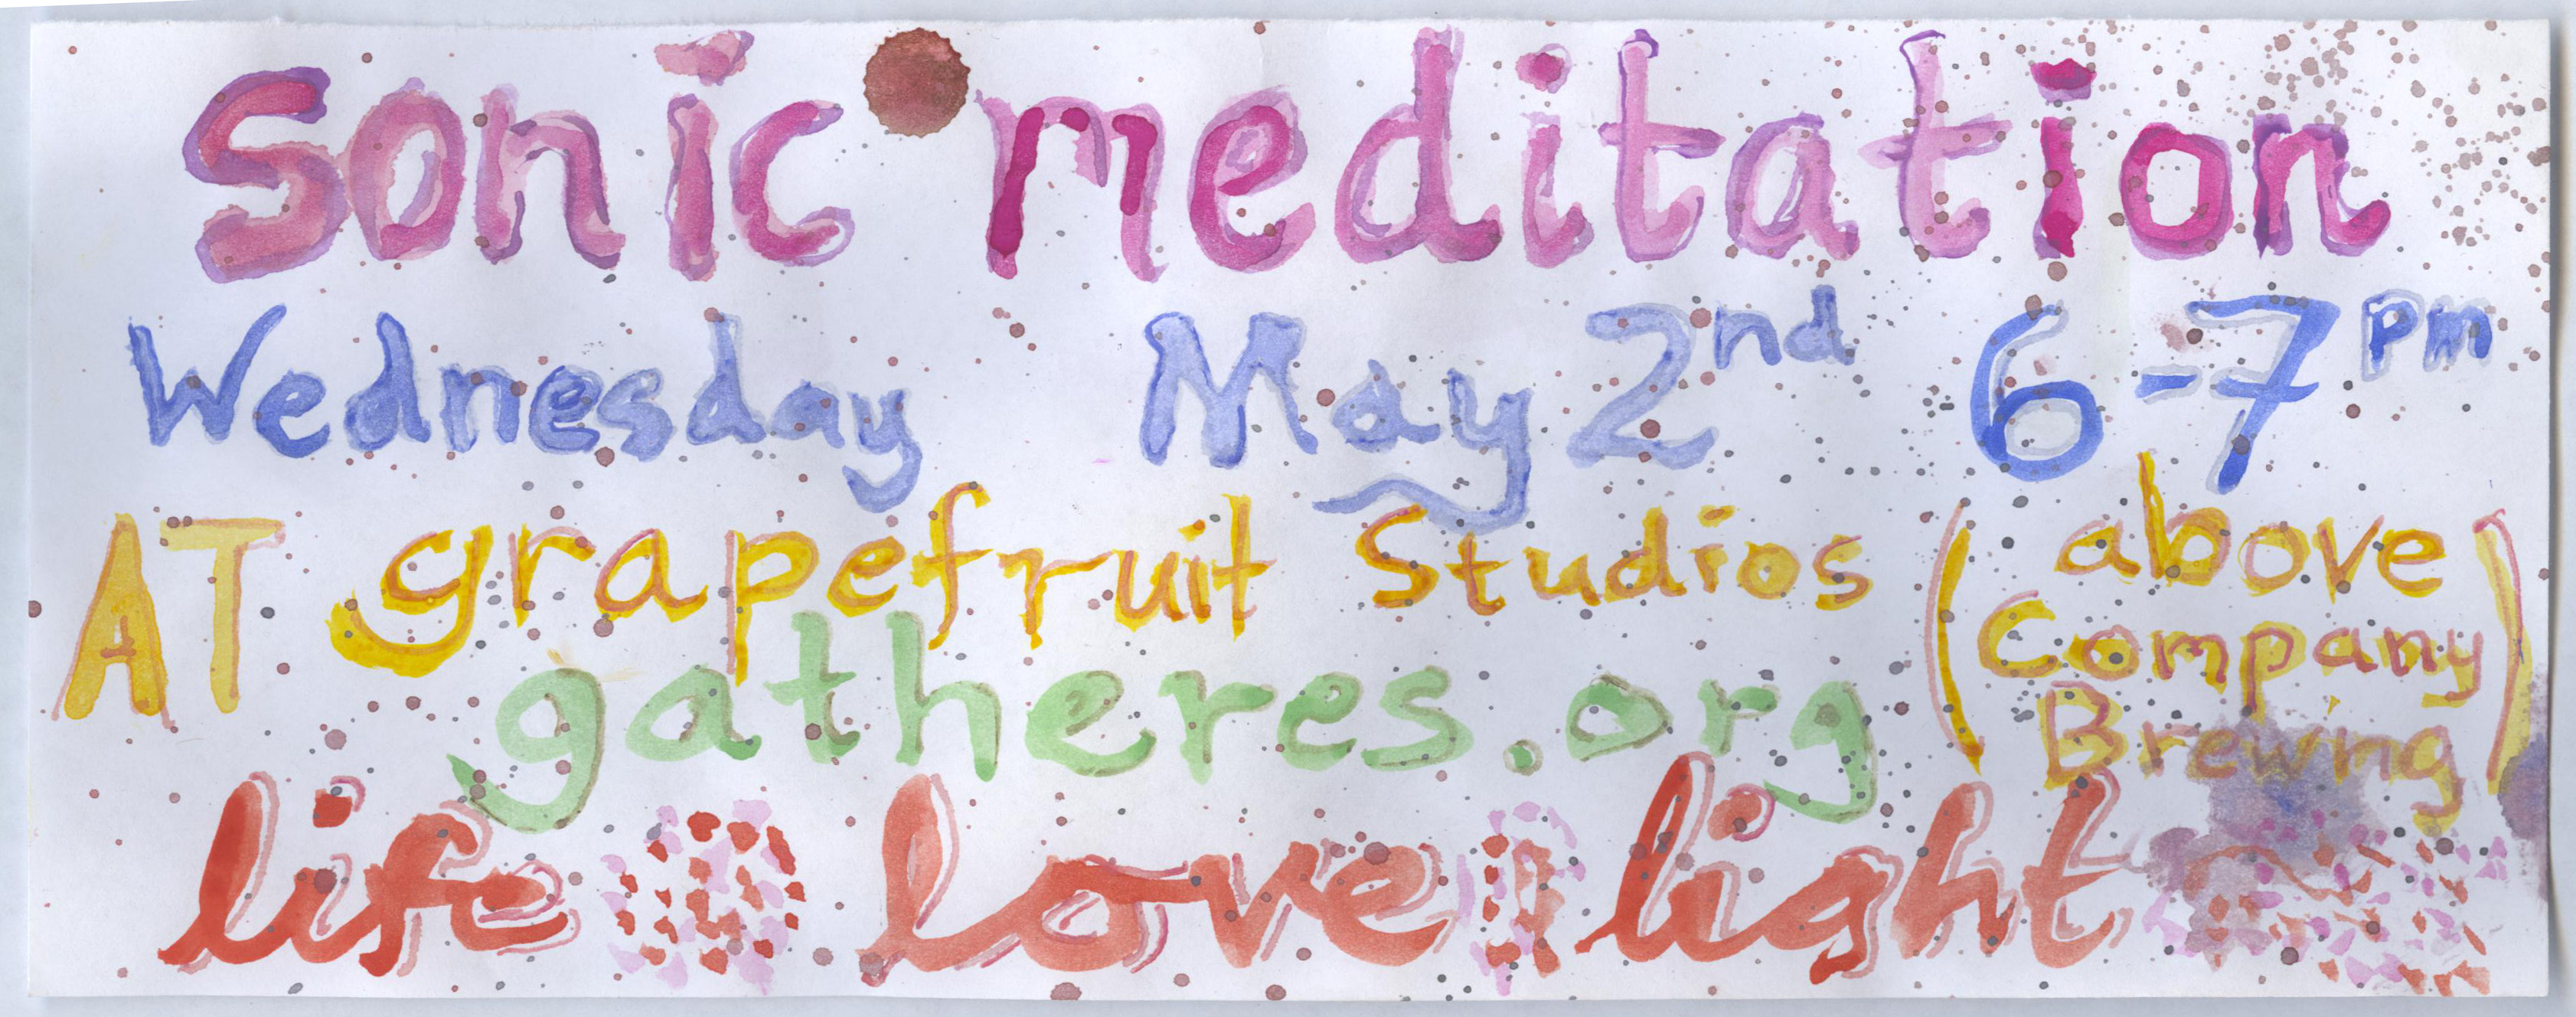 sonic meditation
Wednesday May 2nd 6-7pm
AT grapefruit Studios (above
Company
Brewng)
gatheres.org
life love light